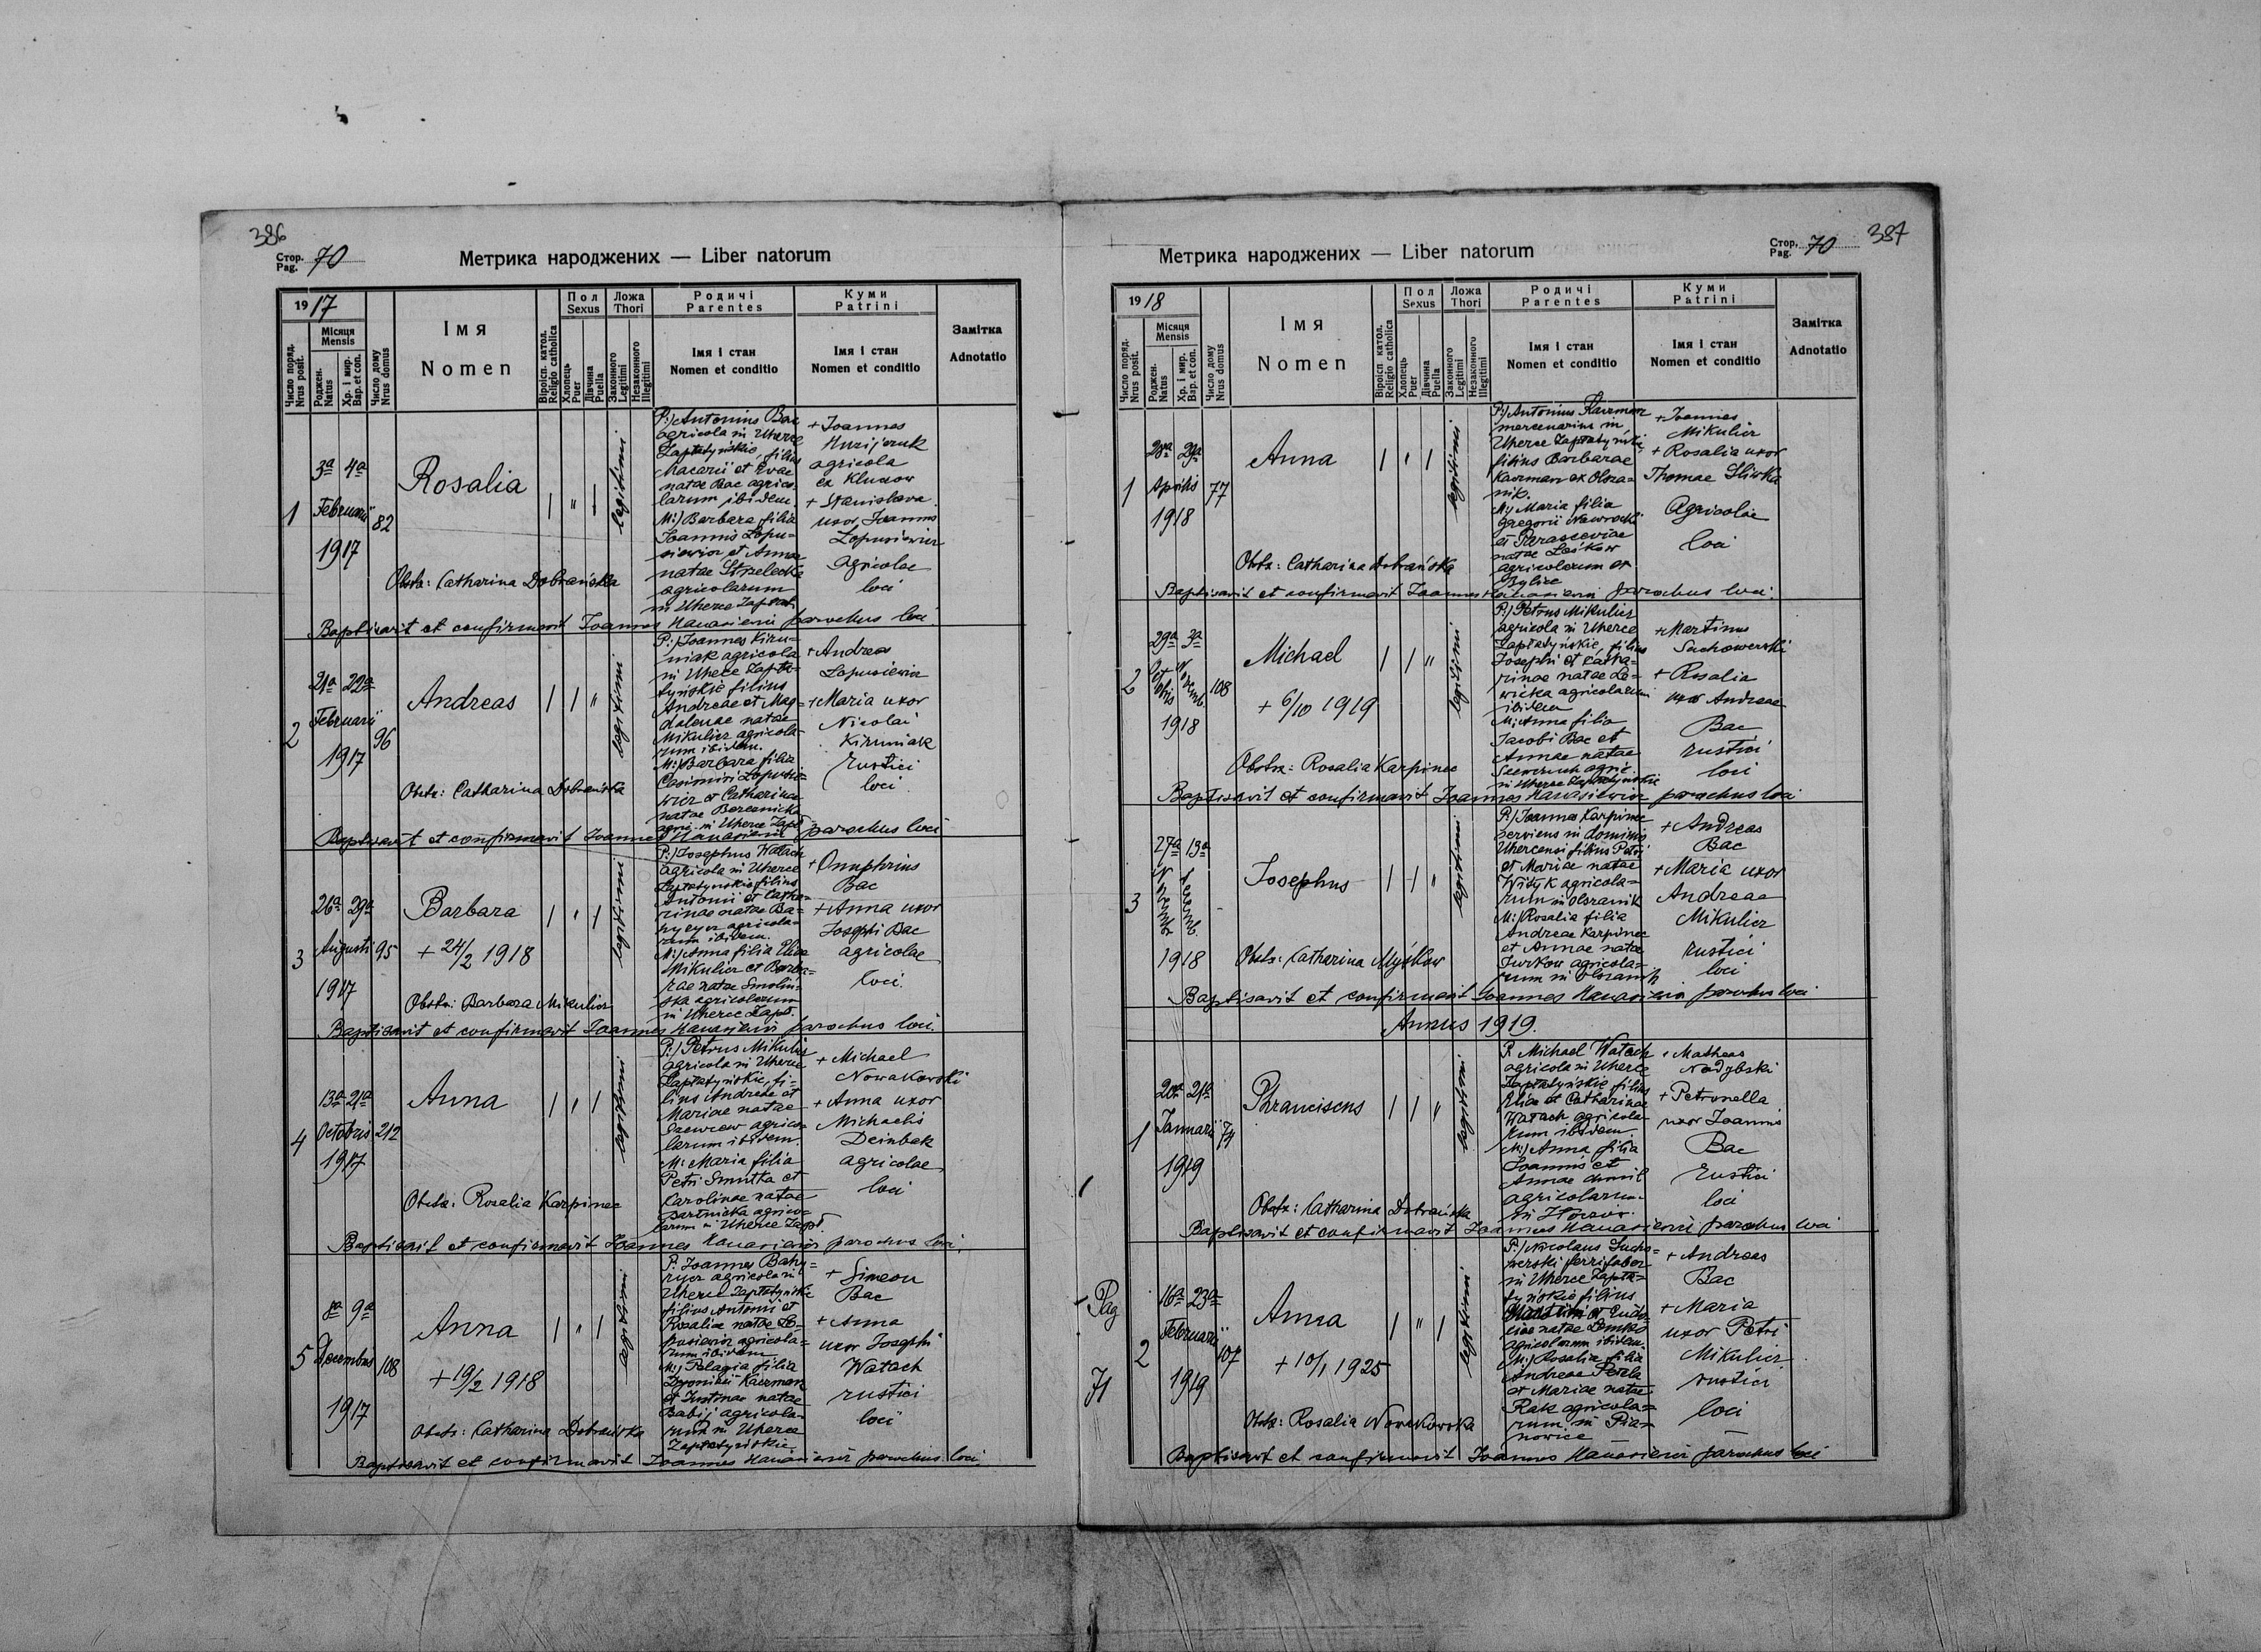 386
Стор.
Pag. 70
Метрика народжених — Liber natorum
1917
Число поряд.
Nrus posit.
Місяця
Mensis
Роджен.
Natus
Хр. і мир.
Bap. et con.
Число дому
Nrus domus
Імя
Nomen
Віроісп. катол.
Religio catholica
Пол
Sexus
Хлопець
Puer
Дівчина
Puella
Ложа
Thori
Законного
Legitimi
Незаконного
Illegitimi
Родичі
Parentes
Імя і стан
Nomen et conditio
Куми
Patrini
Імя і стан
Nomen et conditio
Замітка
Adnotatio
1
3a 4a
Februarii
1917
82
Rosalia
legitimi
Obstr: Catharina Dobrańska
P:) Antonius Bac
agricola in Uherce
Zapłatyńskie, filius
Macarii et Evae
natae Bac agrico-
larum ibidem
M:) Barbara filia
Joannis Łopu-
siewicz et Annae
natae Strzelecka
agricolarum
in Uherce Zapłat.
+ Joannes
agricola
ex
+ Stanislava
uxor Joannis
Łopusiewicz
Agricolae
loci
Baptisavit et confirmavit Joannes Hanasiewicz parochus loci.
2
21a 22a
Februarii
1917
96
Andreas
legitimi
Obstr: Catharina Dobrańska
P:) Joannes Kiru-
niak agricola
in Uherce Zapła-
tyńskie filius
Andreae et Mag-
dalenae natae
Mikulicz agricola-
rum ibidem.
M:) Barbara filia
Casimiri Łopusie-
wicz et Catharinae
natae
agric. in Uherce Zapł.
+ Andreas
Łopusiewicz
+ Maria uxor
Nicolai
Kiruniak
rustici
loci
Baptisavit et confirmavit Joannes Hanasiewicz parochus loci
3
26a 29a
Augusti
1917
95
Barbara
+ 24/2 1918
legitimi
Obstr: Barbara Mikulicz
P:) Josephus Watach
agricola in Uherce
Zapłatyńskie filius
Antonii et Catha-
rinae natae Ba-
hrycz agricola-
rum ibidem.
M:) Anna filia Eliae
Mikulicz et Barba-
rae natae Smolin-
ska agricolarum
in Uherce Zapł.
+ Onuphrius
Bac
+ Anna uxor
Josephi Bac
agricolae
loci.
Baptisavit et confirmavit Joannes Hanasiewicz parochus loci.
4
13a 21a
Octobris
1917
212
Anna
legitimi
Obstr: Rosalia Karpinec
P:) Petrus Mikulicz
agricola in Uherce
Zapłatyńskie, fi-
lius Andreae et
Mariae natae
agrico-
larum ibidem.
M: Maria filia
Petri Smutka et
Karolinae natae
Bartnicka agrico-
larum in Uherce Zapł.
+ Michael
Nowakowski
+ Anna uxor
Michaelis
Deinbek
agricolae
loci
Baptisavit et confirmavit Joannes Hanasiewicz parochus loci.
5
8a 9a
Decembris
1917
108
Anna
+ 19/2 1918
legitimi
Obstr: Catharina Dobrańska
P. Joannes Bahry-
ycz agricola in
Uherce Zapłatyńskie
filius Antonii et
Rosaliae natae Ło-
pusiewicz agricola-
rum ibidem
M:) Pelagia filia
Dyonisii Kaczmar
et Justinae natae
Babij agricola-
rum in Uherce
Zapłatyńskie.
+ Simeon
Bac
+ Anna
uxor Josephi
Watach
rustici
loci
Baptisavit et confirmavit Joannes Hanasiewicz parochus loci.
387
Метрика народжених — Liber natorum
Стор.
Pag. 70
1918
Число поряд.
Nrus posit.
Місяця
Mensis
Роджен.
Natus
Хр. і мир.
Bap. et con.
Число дому
Nrus domus
Імя
Nomen
Віроісп. катол.
Religio catholica
Пол
Sexus
Хлопець
Puer
Дівчина
Puella
Ложа
Thori
Законного
Legitimi
Незаконного
Illegitimi
Родичі
Parentes
Імя і стан
Nomen et conditio
Куми
Patrini
Імя і стан
Nomen et conditio
Замітка
Adnotatio
1
28a 29a
Aprilis
1918
77
Anna
legitimi
Obstr: Catharina Dobrańska
P:) Antonius Kaczmar
mercenarius in
Uherce Zapłatyński
filius Barbarae
Kaczmar ex Olsza-
nik.
M:) Maria filia
Gregorii Nawrocki
et Parasceviae
natae Leśkow
agricolarum ex
Bylice
+ Joannes
Mikulicz
+ Rosalia uxor
Thomae Śliwka
Agricolae
loci
Baptisavit et confirmavit Joannes Hanasiewicz parochus loci.
2
29a 3a
Octobris Novemb.
1918
108
Michael
+ 6/10 1919
legitimi
Obstr: Rosalia Karpinec
P:) Petrus Mikulicz
agricola in Uherce
Zapłatyńskie, filius
Josephi et Catha-
rinae natae Le-
wicka agricolarum
ibidem
M: Anna filia
Jacobi Bac et
Annae natae
agric.
in Uherce Zapłatyńskie
+ Martinus
Suchowerski
+ Rosalia
uxor Andreae
Bac
rustici
loci
Baptisavit et confirmavit Joannes Hanasiewicz parochus loci
3
27a 13a
Novemb. Decemb.
1918
-
Josephus
legitimi
Obstr: Catharina Myśkow
P:) Joannes Karpinec
serviens in dominio
Uhercensi filius Petri
et Mariae natae
Wityk agricola-
rum in Olszanik
M:) Rosalia filia
Andreae Karpinec
et Annae natae
Jurkow agricola-
rum in Olszanik
+ Andreas
Bac
+ Maria uxor
Andreae
Mikulicz
rustici
loci
Baptisavit et confirmavit Joannes Hanasiewicz parochus loci
Annus 1919.
1
20a 21a
Januarii
1919
74
Phranciscus
legitimi
Obstr: Catharina Dobrańska
P. Michael Watach
agricola in Uherce
Zapłatyńskie filius
Eliae et Catharinae
Watach agricola-
rum ibidem.
M:) Anna filia
Joannis et
Annae
agricolarum
in
+ Matheas
Nadybski
+ Petronella
uxor Joannis
Bac
rustici
loci
Baptisavit et confirmavit Joannes Hanasiewicz parochus loci
Pag
71
2
16a 23a
Februarii
1919
107
Anna
+ 10/1 1925
legitimi
Obstr: Rosalia Nowakowska
P:) Nicolaus Sucho-
werski ferrifaber
in Uherce Zapła-
tyńskie filius
Martini et Eudo-
ciae natae Demko
agricolarum ibidem.
M:) Rosalia filia
Andreae Perla
et Mariae natae
Rak agricola-
rum in Pia-
nowice
+ Andreas
Bac
+ Maria
uxor Petri
Mikulicz
rustici
loci
Baptisavit et confirmavit Joannes Hanasiewicz parochus loci